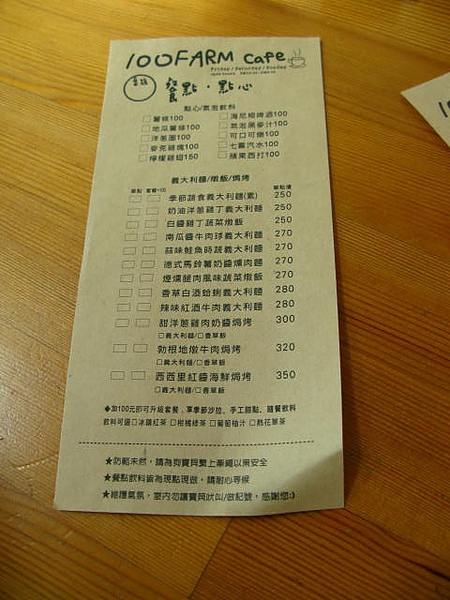 100FARM cafe
Friday / Saturday / Sunday
餐點．點心
點心/氣泡飲料
□薯條100 □海尼根啤酒100
□地瓜薯條100 □氣泡黑麥汁100
□洋蔥圈100 □可口可樂100
□麥克雞塊100 □七喜汽水100
□檸檬雞翅150 □蘋果西打100
義大利麵/燉飯/焗烤
單點 套餐+100 單點價
□ □ 季節蔬食義大利麵(素) 250
□ □ 奶油洋蔥雞丁義大利麵 250
□ □ 白醬雞丁蔬菜燉飯 250
□ □ 南瓜醬牛肉球義大利麵 270
□ □ 蒜味鮭魚時蔬義大利麵 270
□ □ 德式馬鈴薯奶醬燻肉麵 270
□ □ 煙燻腿肉風味蔬菜燉飯 270
□ □ 香草白酒蛤蜊義大利麵 280
□ □ 辣味紅酒牛肉義大利麵 280
□ □ 甜洋蔥雞肉奶醬焗烤 300
□義大利麵/□香草飯
□ □ 勃根地燉牛肉焗烤 320
□義大利麵/□香草飯
□ □ 西西里紅醬海鮮焗烤 350
□義大利麵/□香草飯
◆加100元即可升級套餐，享季節沙拉、手工甜點、隨餐飲料
飲料可選□冰釀紅茶 □柑橘綠茶 □葡萄柚汁 □熱花草茶
★防範未然，請為狗寶貝繫上牽繩以策安全
★餐點飲料皆為現點現做，請耐心等候
★維護氣氛，室內勿讓寶貝吠叫/做記號，感謝您:)